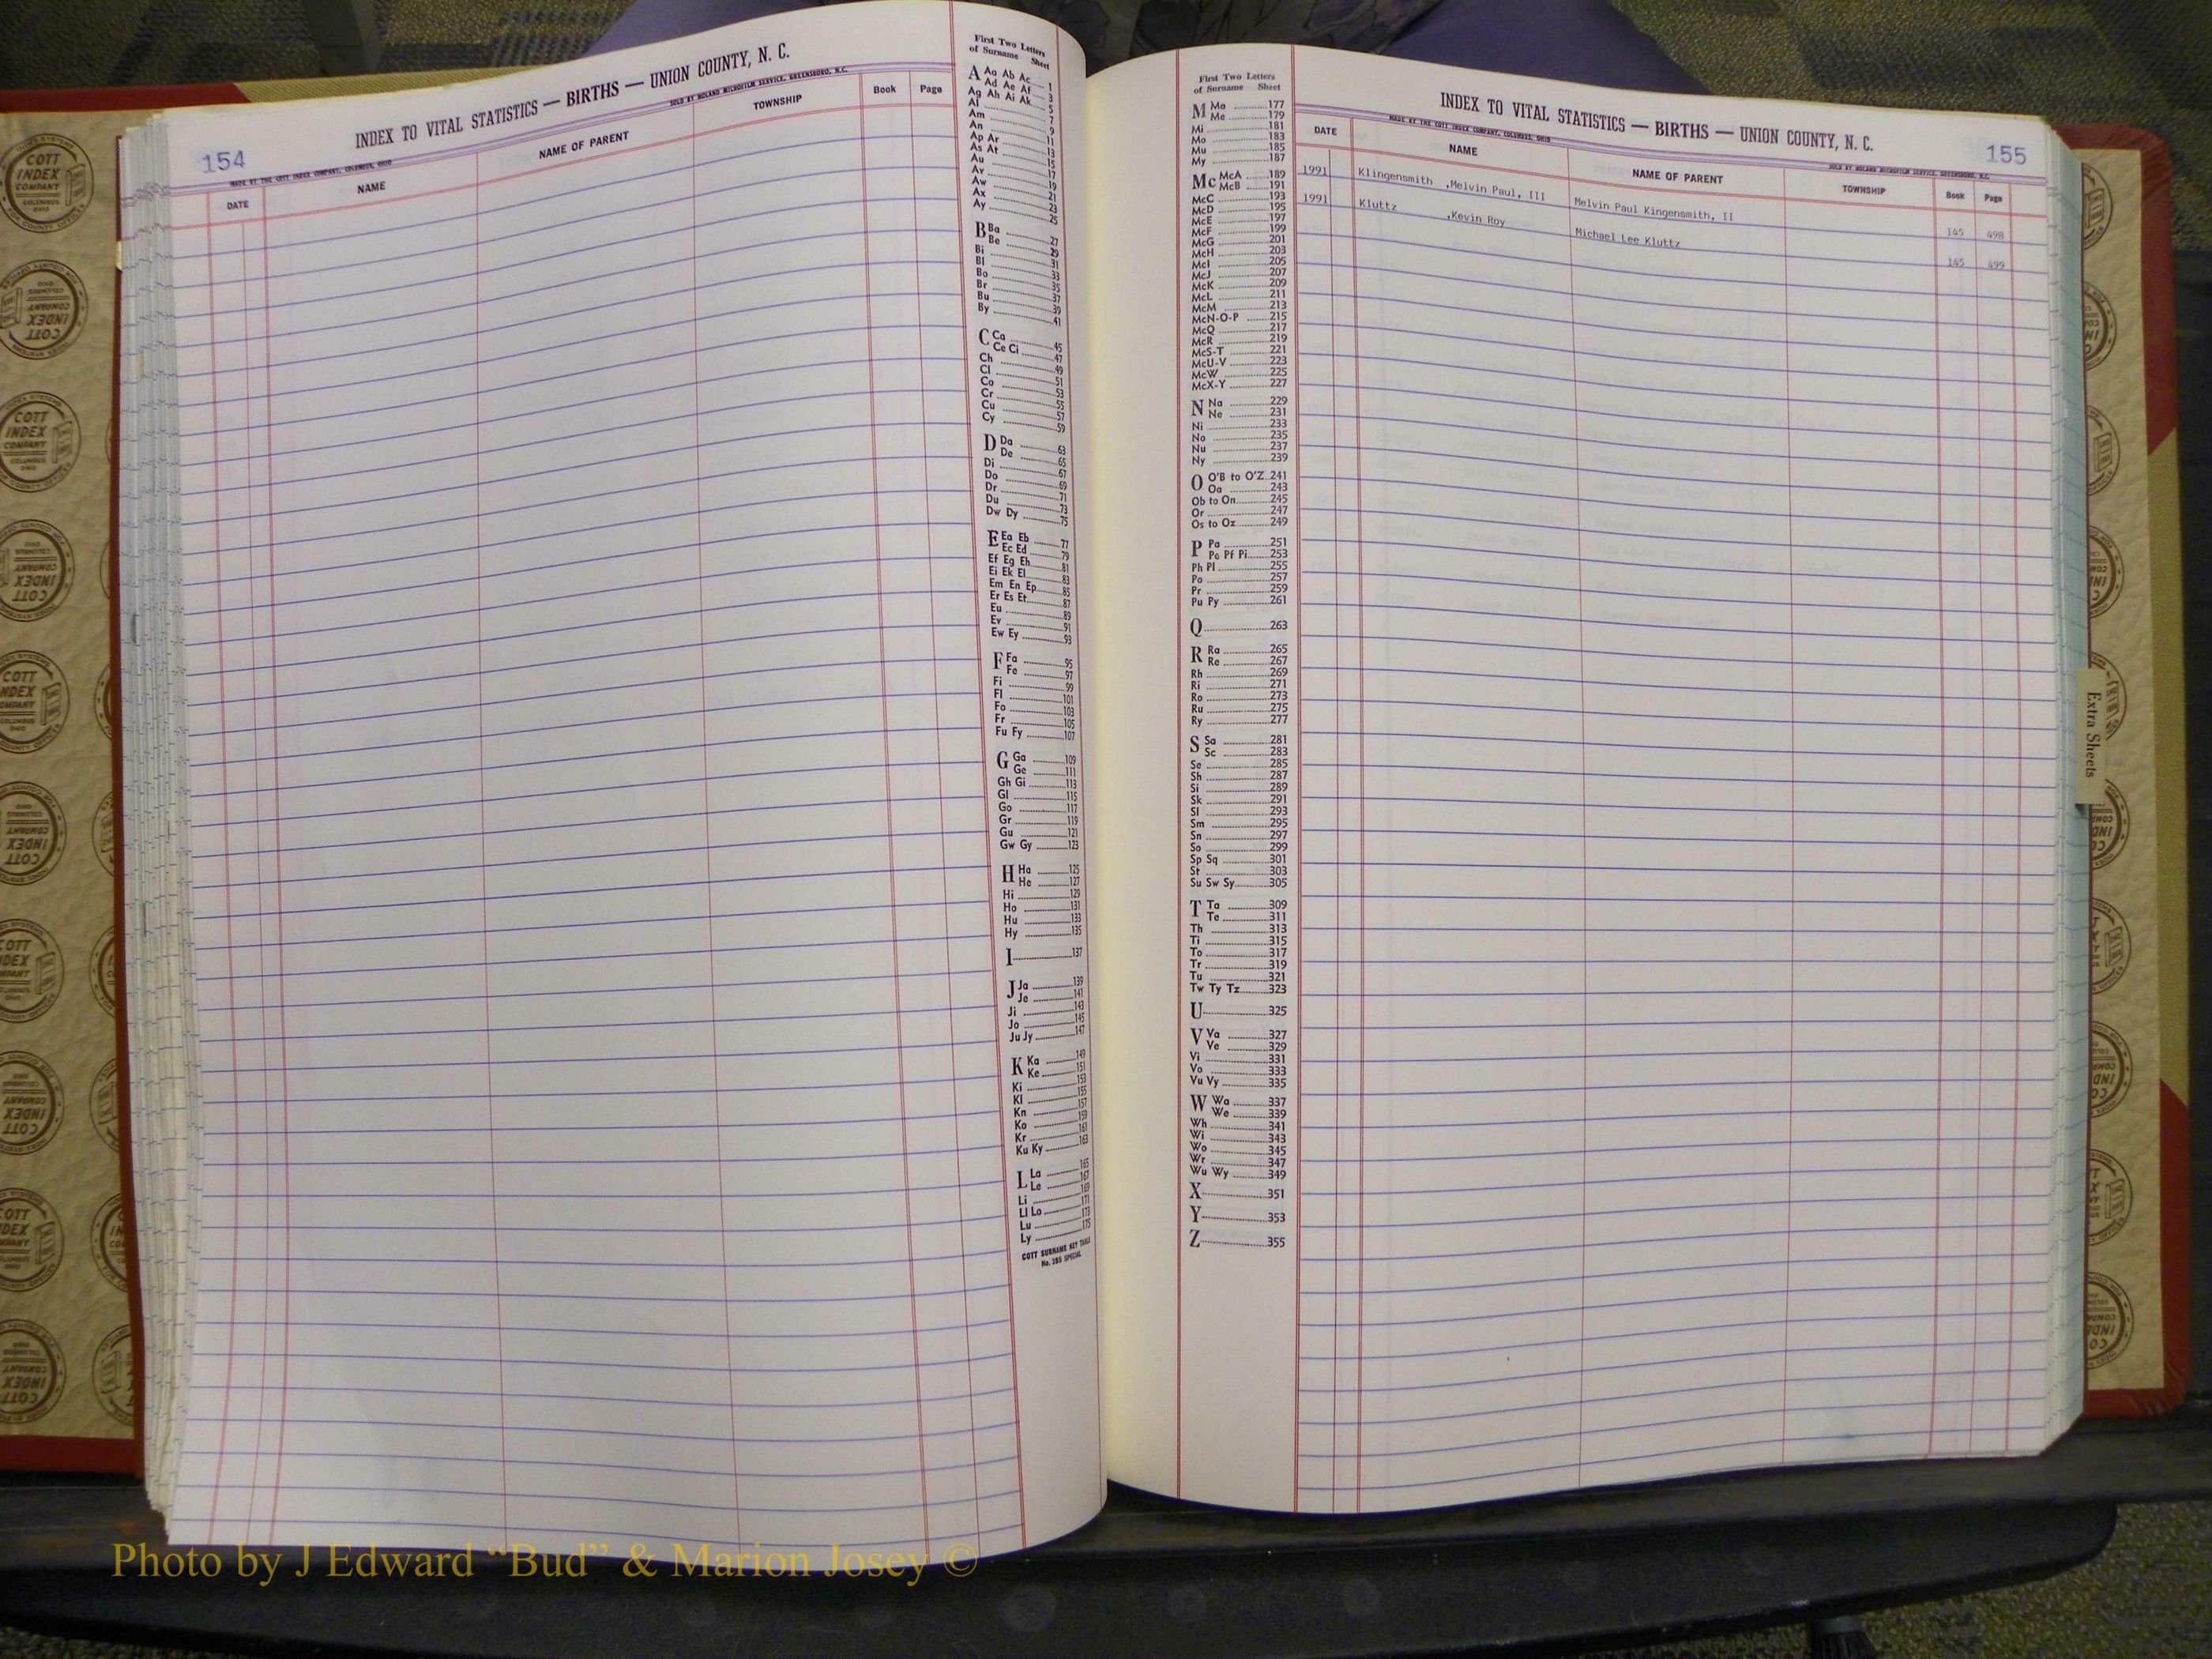 154
INDEX TO VITAL STATISTICS — BIRTHS — UNION COUNTY, N. C.
MADE BY THE COTT INDEX COMPANY, COLUMBUS, OHIO
SOLD BY NOLAND MICROFILM SERVICE, GREENSBORO, N.C.
DATE NAME NAME OF PARENT TOWNSHIP Book Page
First Two Letters
of Surname Sheet
A Aa Ab Ac 1
Ad Ae Af 3
Ag Ah Ai Ak 5
Al 7
Am 9
An 11
Ap Ar 13
As At 15
Au 17
Av 19
Aw 21
Ax 23
Ay 25
B Ba 27
Be 29
Bi 31
Bl 33
Bo 35
Br 37
Bu 39
By 41
C Ca 45
Ce Ci 47
Ch 49
Cl 51
Co 53
Cr 55
Cu 57
Cy 59
D Da 63
De 65
Di 67
Do 69
Dr 71
Du 73
Dw Dy 75
E Ea Eb 77
Ec Ed 79
Ef Eg Eh 81
Ei Ek El 83
Em En Ep 85
Er Es Et 87
Eu 89
Ev 91
Ew Ey 93
F Fa 95
Fe 97
Fi 99
Fl 101
Fo 103
Fr 105
Fu Fy 107
G Ga 109
Ge 111
Gh Gi 113
Gl 115
Go 117
Gr 119
Gu 121
Gw Gy 123
H Ha 125
He 127
Hi 129
Ho 131
Hu 133
Hy 135
I 137
J Ja 139
Je 141
Ji 143
Jo 145
Ju Jy 147
K Ka 149
Ke 151
Ki 153
Kl 155
Kn 157
Ko 159
Kr 161
Ku Ky 163
L La 165
Le 167
Li 169
Ll Lo 171
Lu 173
Ly 175
COTT SURNAME KEY TABLE
No. 355 SPECIAL
First Two Letters
of Surname Sheet
M Ma 177
Me 179
Mi 181
Mo 183
Mu 185
My 187
Mc McA 189
McB 191
McC 193
McD 195
McE 197
McF 199
McG 201
McH 203
McI 205
McJ 207
McK 209
McL 211
McM 213
McN-O-P 215
McQ 217
McR 219
McS-T 221
McU-V 223
McW 225
McX-Y 227
N Na 229
Ne 231
Ni 233
No 235
Nu 237
Ny 239
O O'B to O'Z 241
Oa 243
Ob to On 245
Or 247
Os to Oz 249
P Pa 251
Pe Pf Pi 253
Ph Pl 255
Po 257
Pr 259
Pu Py 261
Q 263
R Ra 265
Re 267
Rh 269
Ri 271
Ro 273
Ru 275
Ry 277
S Sa 281
Sc 283
Se 285
Sh 287
Si 289
Sk 291
Sl 293
Sm 295
Sn 297
So 299
Sp Sq 301
St 303
Su Sw Sy 305
T Ta 309
Te 311
Th 313
Ti 315
To 317
Tr 319
Tu 321
Tw Ty Tz 323
U 325
V Va 327
Ve 329
Vi 331
Vo 333
Vu Vy 335
W Wa 337
We 339
Wh 341
Wi 343
Wo 345
Wr 347
Wu Wy 349
X 351
Y 353
Z 355
INDEX TO VITAL STATISTICS — BIRTHS — UNION COUNTY, N. C.
155
MADE BY THE COTT INDEX COMPANY, COLUMBUS, OHIO
SOLD BY NOLAND MICROFILM SERVICE, GREENSBORO, N.C.
DATE NAME NAME OF PARENT TOWNSHIP Book Page
1991 Klingensmith ,Melvin Paul, III Melvin Paul Kingensmith, II 145 498
1991 Kluttz ,Kevin Roy Michael Lee Kluttz 145 499
Extra Sheets
COTT
INDEX
COMPANY
COLUMBUS
OHIO
Photo by J Edward “Bud” & Marion Josey ©